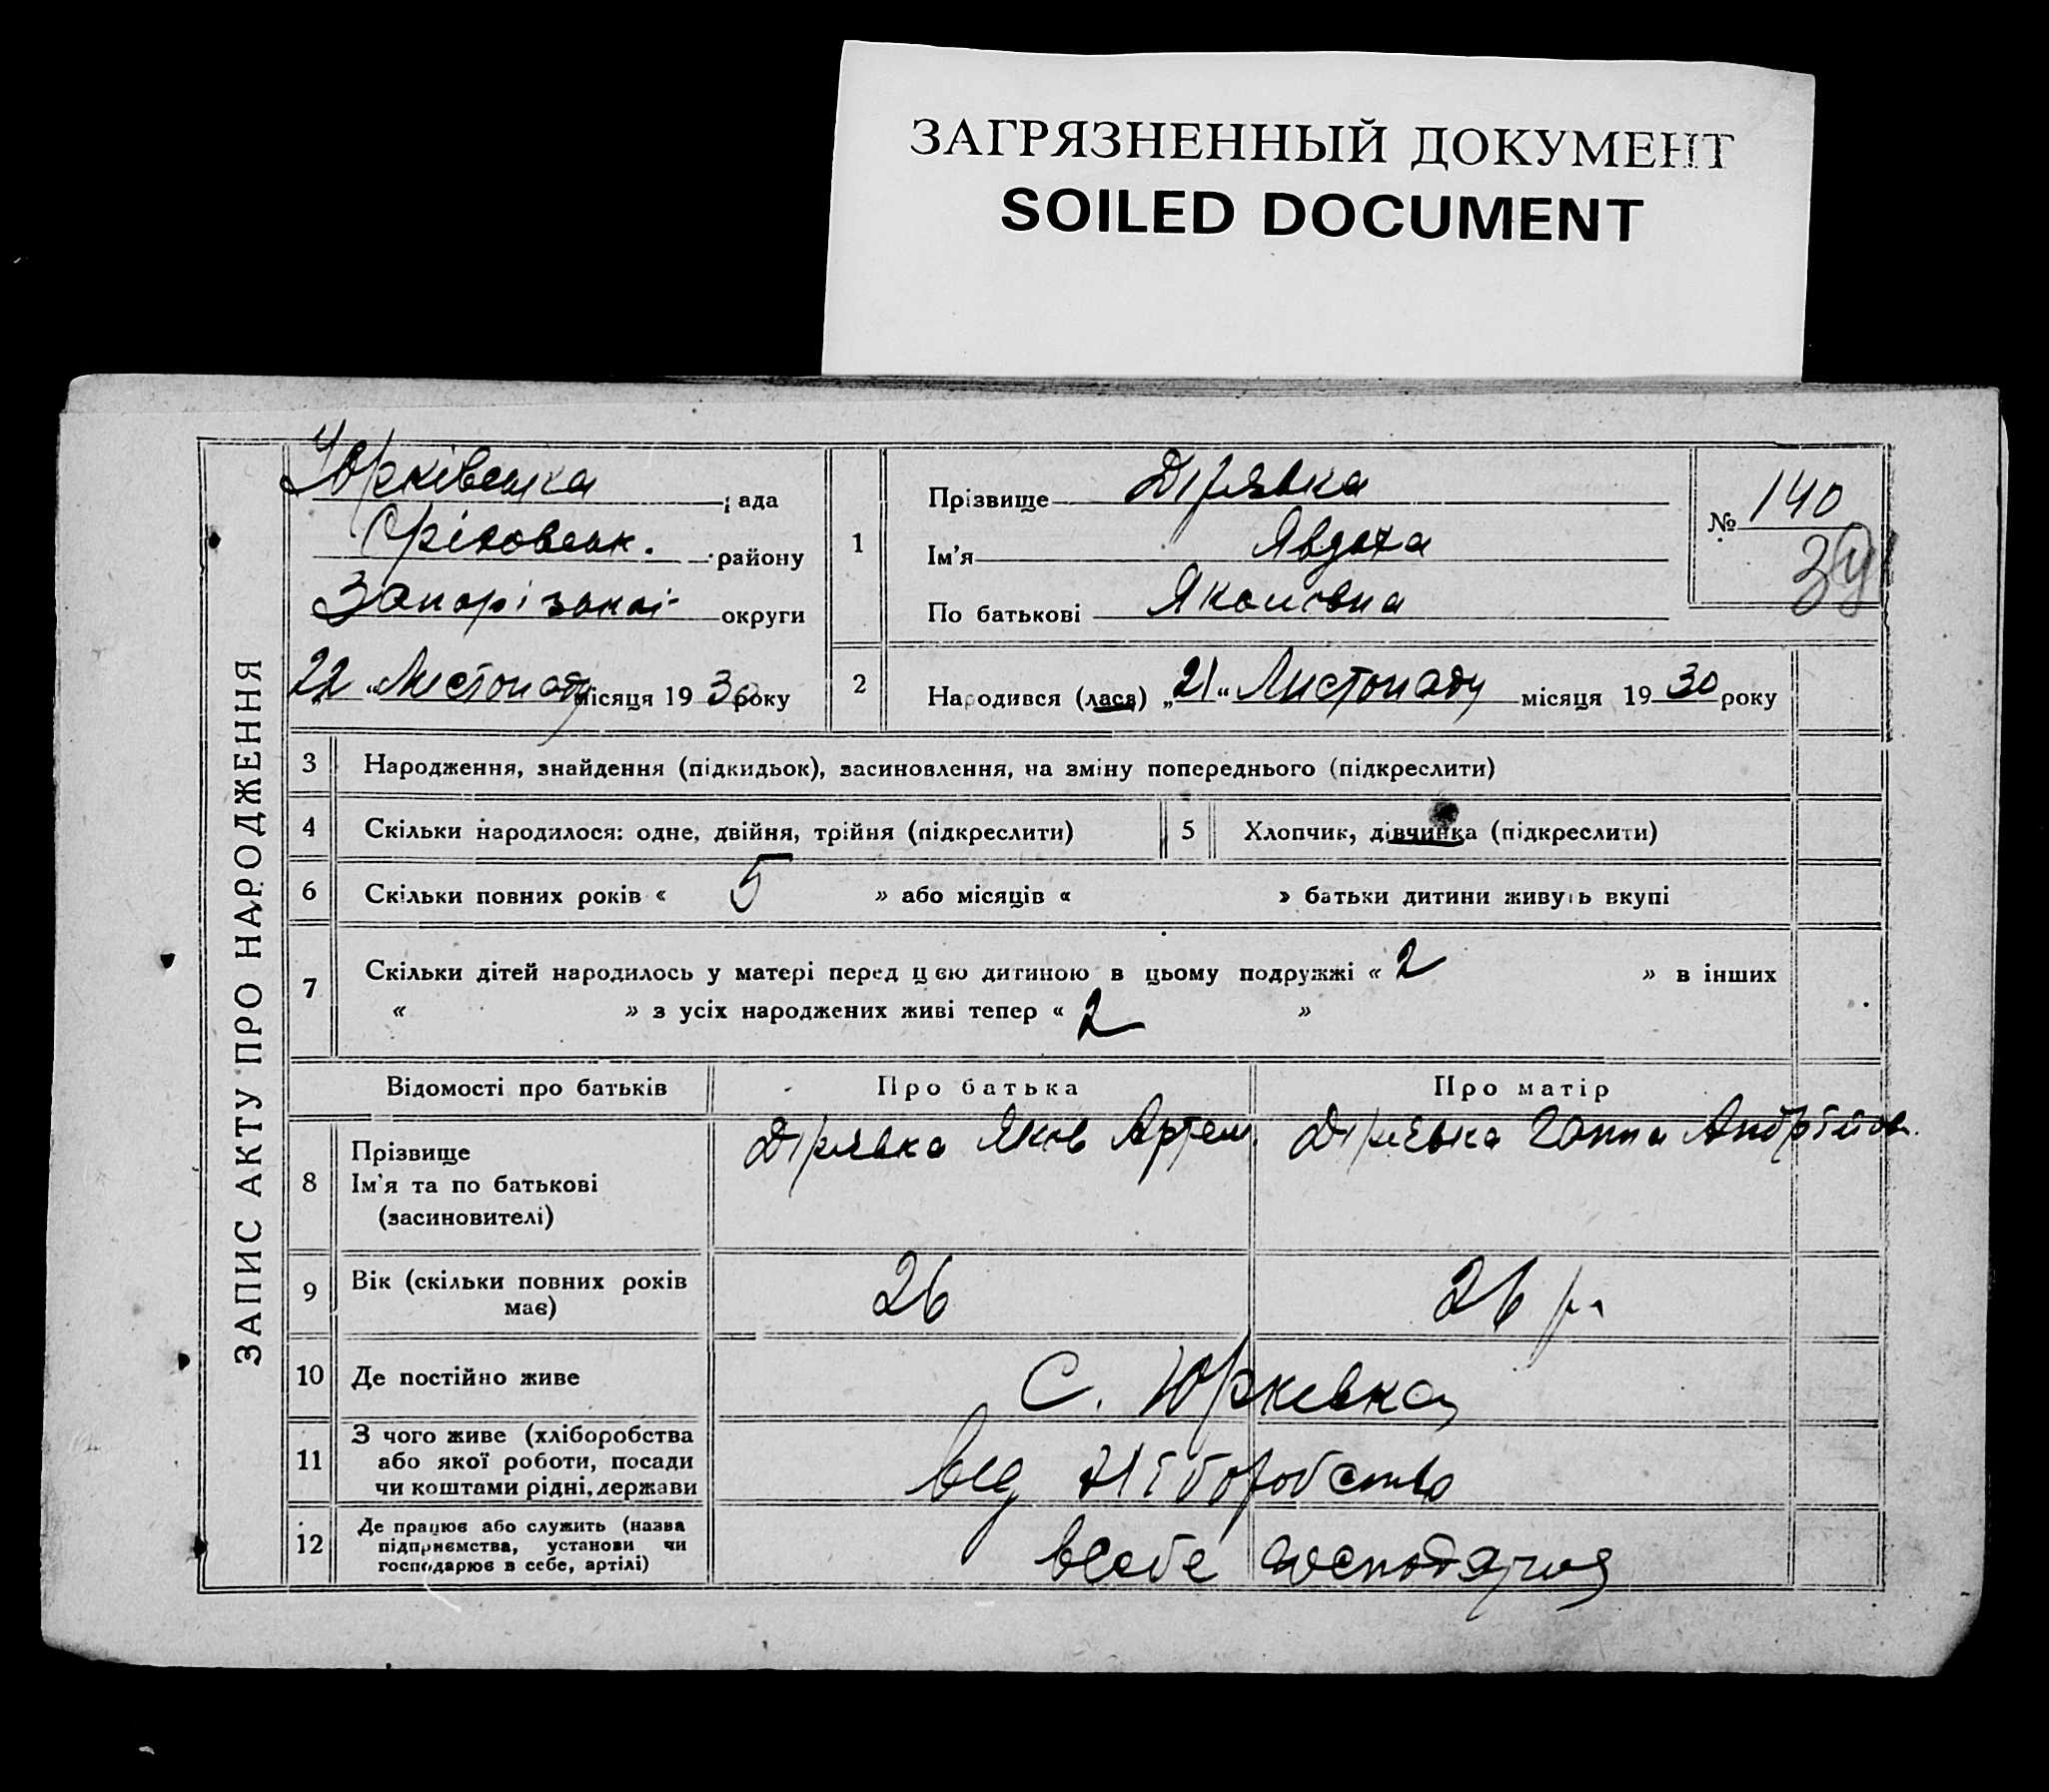 ЗАГРЯЗНЕННЫЙ ДОКУМЕНТ
SOILED DOCUMENT
ЗАПИС АКТУ ПРО НАРОДЖЕННЯ
Юрківська рада
Оріховськ. району
Запорізької округи
22 „Листопаду місяця 1930 року
1
Прізвище Дірявка
Ім'я Явдоха
По батькові Якововна
№ 140
39
2 Народився (лася) „21“ Листопаду місяця 1930 року
3 Народження, знайдення (підкидьок), засиновлення, на зміну попереднього (підкреслити)
4 Скільки народилося: одне, двійня, трійня (підкреслити)
5 Хлопчик, дівчинка (підкреслити)
6 Скільки повних років « 5 » або місяців « » батьки дитини живуть вкупі
7 Скільки дітей народилось у матері перед цею дитиною в цьому подружжі « 2 » в інших
« » з усіх народжених живі тепер « 2 »
Відомості про батьків Про батька Про матір
8 Прізвище
Ім'я та по батькові
(засиновителі)
Дірявка Яков Артем.
Дірявка Ганна Андрійов.
9 Вік (скільки повних років
має)
26
26 р.
10 Де постійно живе
С. Юрковка
11 З чого живе (хліборобства
або якої роботи, посади
чи коштами рідні, держави
від хліборобства
12 Де працює або служить (назва
підприємства, установи чи
господарює в себе, артілі)
всебе